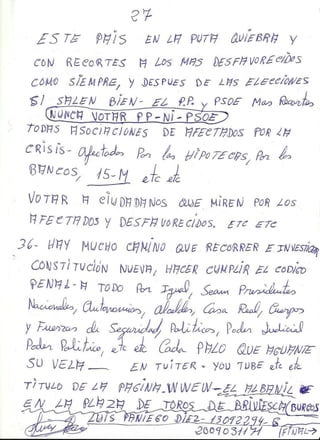 27
ESTE PAIS EN LA PUTA QUIEBRA Y
CON RECORTES A LOS MAS DESFAVORECIDOS
COMO SIEMPRE, Y DESPUES DE LAS ELECCIONES
SI SALEN BIEN- EL P.P. y PSOE Mas Recortes
NUNCA VOTAR PP-NI-PSOE
TODAS ASOCIACIONES DE AFECTADOS POR LA
CRISIS- Afectados Por las HIPOTECAS, Por los
BANCOS, 15-M etc etc
VOTAR A CIUDADANOS QUE MIREN POR LOS
AFECTADOS Y DESFAVORECIDOS. ETC ETC
36- HAY MUCHO CAMINO QUE RECORRER E INVESTIGAR
CONSTITUCIÓN NUEVA, HACER CUMPLIR EL CODIGO
PENAL- A TODO POR Igual, Sean Presidentes
Nacionales, Autonomias, Alcaldes, Casa Real, Cuerpos
y Fuerzas de Seguridad, Politicos, Poder Judicial
Poder Politico, etc etc Cada PALO QUE AGUANTE
SU VELA— EN TUITER- YOU TUBE etc etc
TITULO DE LA PAGINA.WWEW- EL ALBANIL
EN LA PLAZA DE TOROS DE BRIVIESCA (BURGOS
LUIS PANIEGO DIEZ- 13092294-G
2009031171 (FINAL→